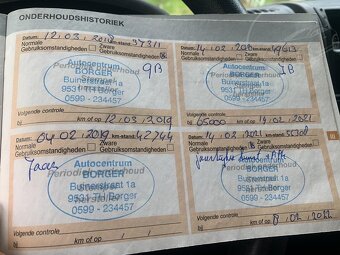 ONDERHOUDSHISTORIEK
Datum: 12.03.2018 km-stand: 37311
Normale Zware
Gebruiksomstandigheden Gebruiksomstandigheden
Autocentrum
BORGER
Buinerstraat 1a
9531 TH Borger
0599 - 234457
Volgende controle
bij km of op 12.03.2019
Datum: 14.02.2020 km-stand:
Normale Zware
Gebruiksomstandigheden Gebruiksomstandigheden
Autocentrum
BORGER
Buinerstraat 1a
9531 TH Borger
0599 - 234457
Volgende controle
bij 65000 km of op 14.02.2021
Datum: 04.02.2019 km-stand: 42744
Normale Zware
Gebruiksomstandigheden Gebruiksomstandigheden
Autocentrum
BORGER
Buinerstraat 1a
9531 TH Borger
0599 - 234457
Volgende controle
bij km of op
Datum: 14.02.2021 km-stand:
Normale Zware
Gebruiksomstandigheden Gebruiksomstandigheden
Autocentrum
BORGER
Buinerstraat 1a
9531 TH Borger
0599 - 234457
Volgende controle
bij km of op 8.02.2022